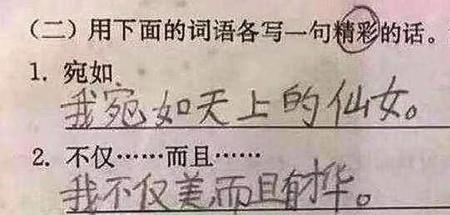 （二）用下面的词语各写一句精彩的话。
1. 宛如
我宛如天上的仙女。
2. 不仅……而且……
我不仅美,而且有才华。